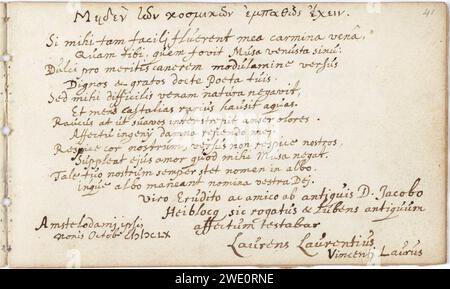 Μηδὲν τῶν κοσμικῶν ἐμπαθῶς ἔχειν.
41
Si mihi tam facili fluerent mea carmina venâ,
Quam tibi, quem fovit Musa venusta sinu;
Dulci pro meritis canerem modulamine versus
Dignos & gratos docte Poeta tuis.
Sed mihi difficilis venam natura negavit,
Et mens castalias rarius hausit aquas.
Raucus at ut suaves interstrepit anser olores
Affectu ingenij damna rependo mei
Respice cor nostrum, versus non respice nostros,
Suppleat ejus amor quod mihi Musa negat.
Tale tuo nostrum semper stet nomen in albo,
inque albo maneant nomina vestra Dej.
Viro Erudito ac amico ab antiquis D. Jacobo
Heiblocq sic rogatus & lubens antiquum
affectum testabar
Amstelodami ipsis
nonis Octobr
Laurens Laurentius
Vincentij Laurus
alamy
Image ID: 2WE0RNE
www.alamy.com